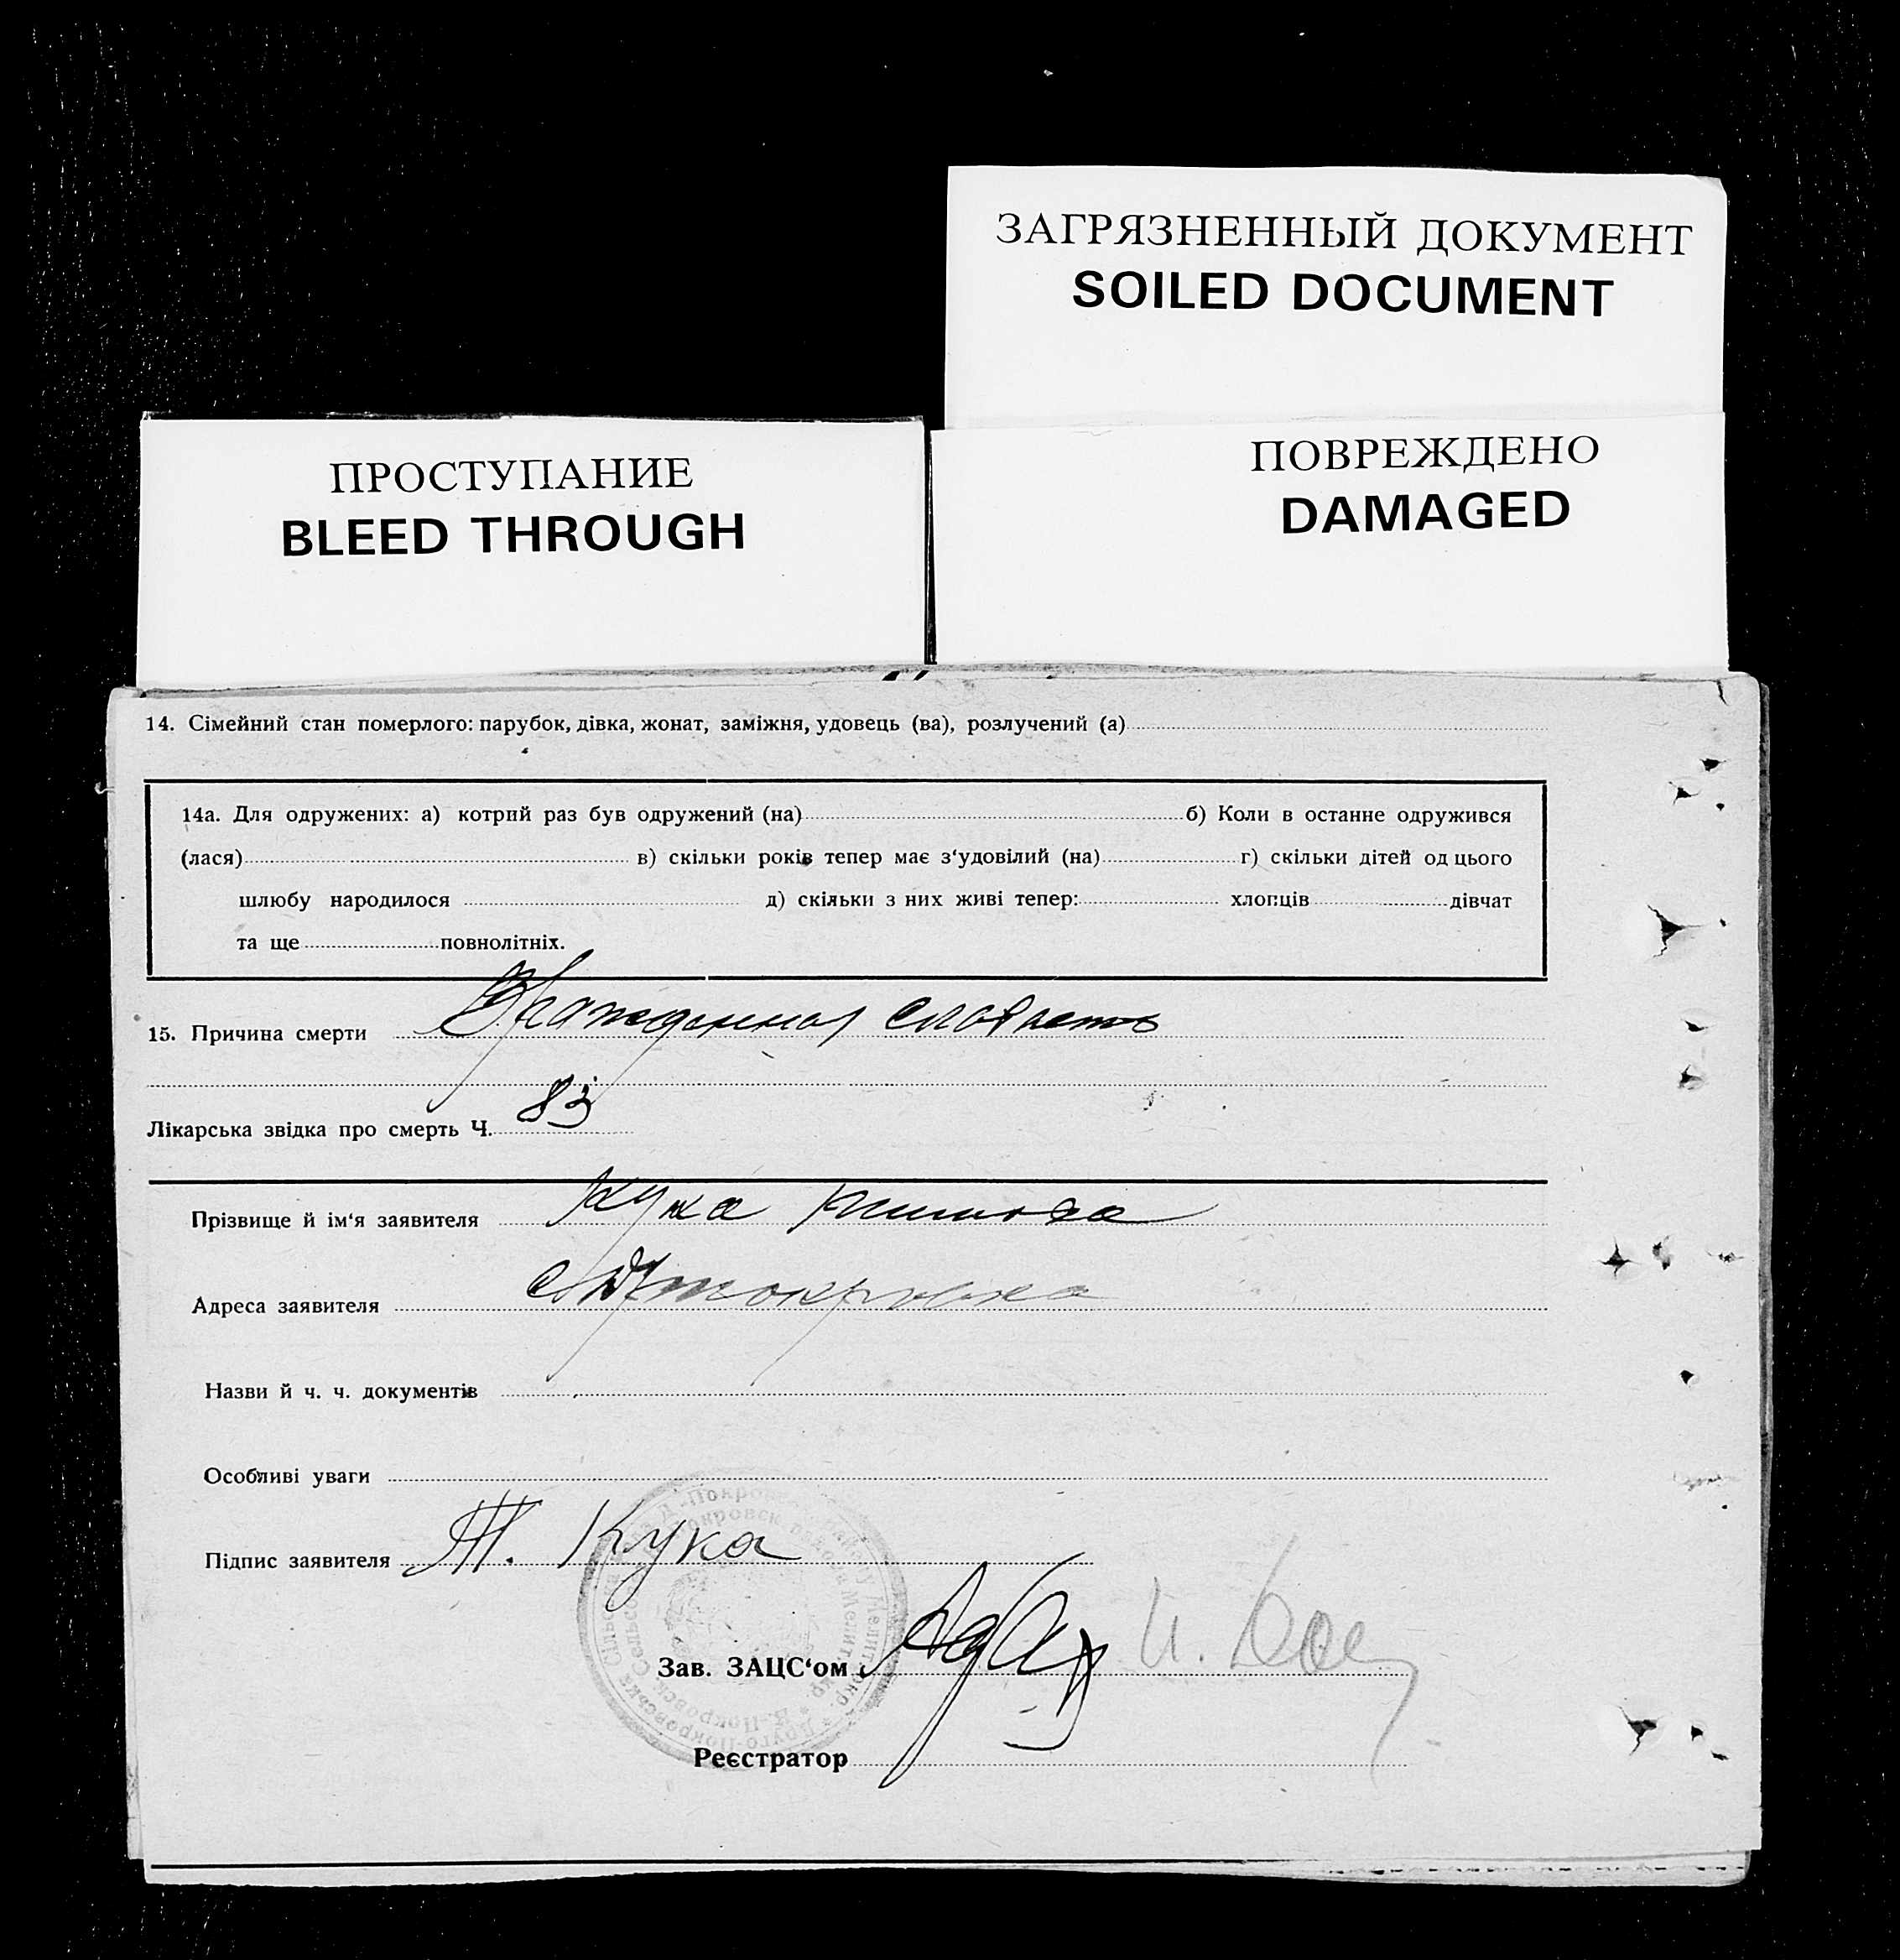 ЗАГРЯЗНЕННЫЙ ДОКУМЕНТ
SOILED DOCUMENT
ПРОСТУПАНИЕ
BLEED THROUGH
ПОВРЕЖДЕНО
DAMAGED
14. Сімейний стан померлого: парубок, дівка, жонат, заміжня, удовець (ва), розлучений (а)
14а. Для одружених: а) котрий раз був одружений (на) б) Коли в останне одружився
(лася) в) скільки років тепер має з‘удовілий (на) г) скільки дітей од цього
шлюбу народилося д) скільки з них живі тепер: хлопців дівчат
та ще повнолітніх.
15. Причина смерти слабость
Лікарська звідка про смерть Ч. 83
Прізвище й ім‘я заявителя Кука
Адреса заявителя
Назви й ч. ч. документів
Особливі уваги
Підпис заявителя Т. Кука
Зав. ЗАЦС‘ом
Реєстратор